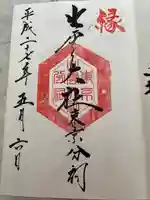 縁
出雲大社東京分祠
平成二十七年五月六日